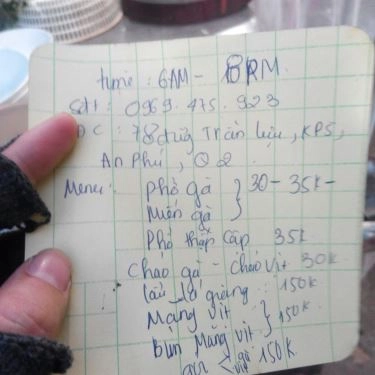 time : 6AM - 8PM.
Sđt : 0969.475.923
ĐC : 78 đường Trần Lựu, KP5,
An Phú, Q2.
Menu : Phở gà } 30 - 35k -
Miến gà
Phở thập cập 35k
cháo gà - cháo vịt 30k
lẩu lá giang : 150k
Măng vịt } 150k
Bún Măng vịt
vịt 150k